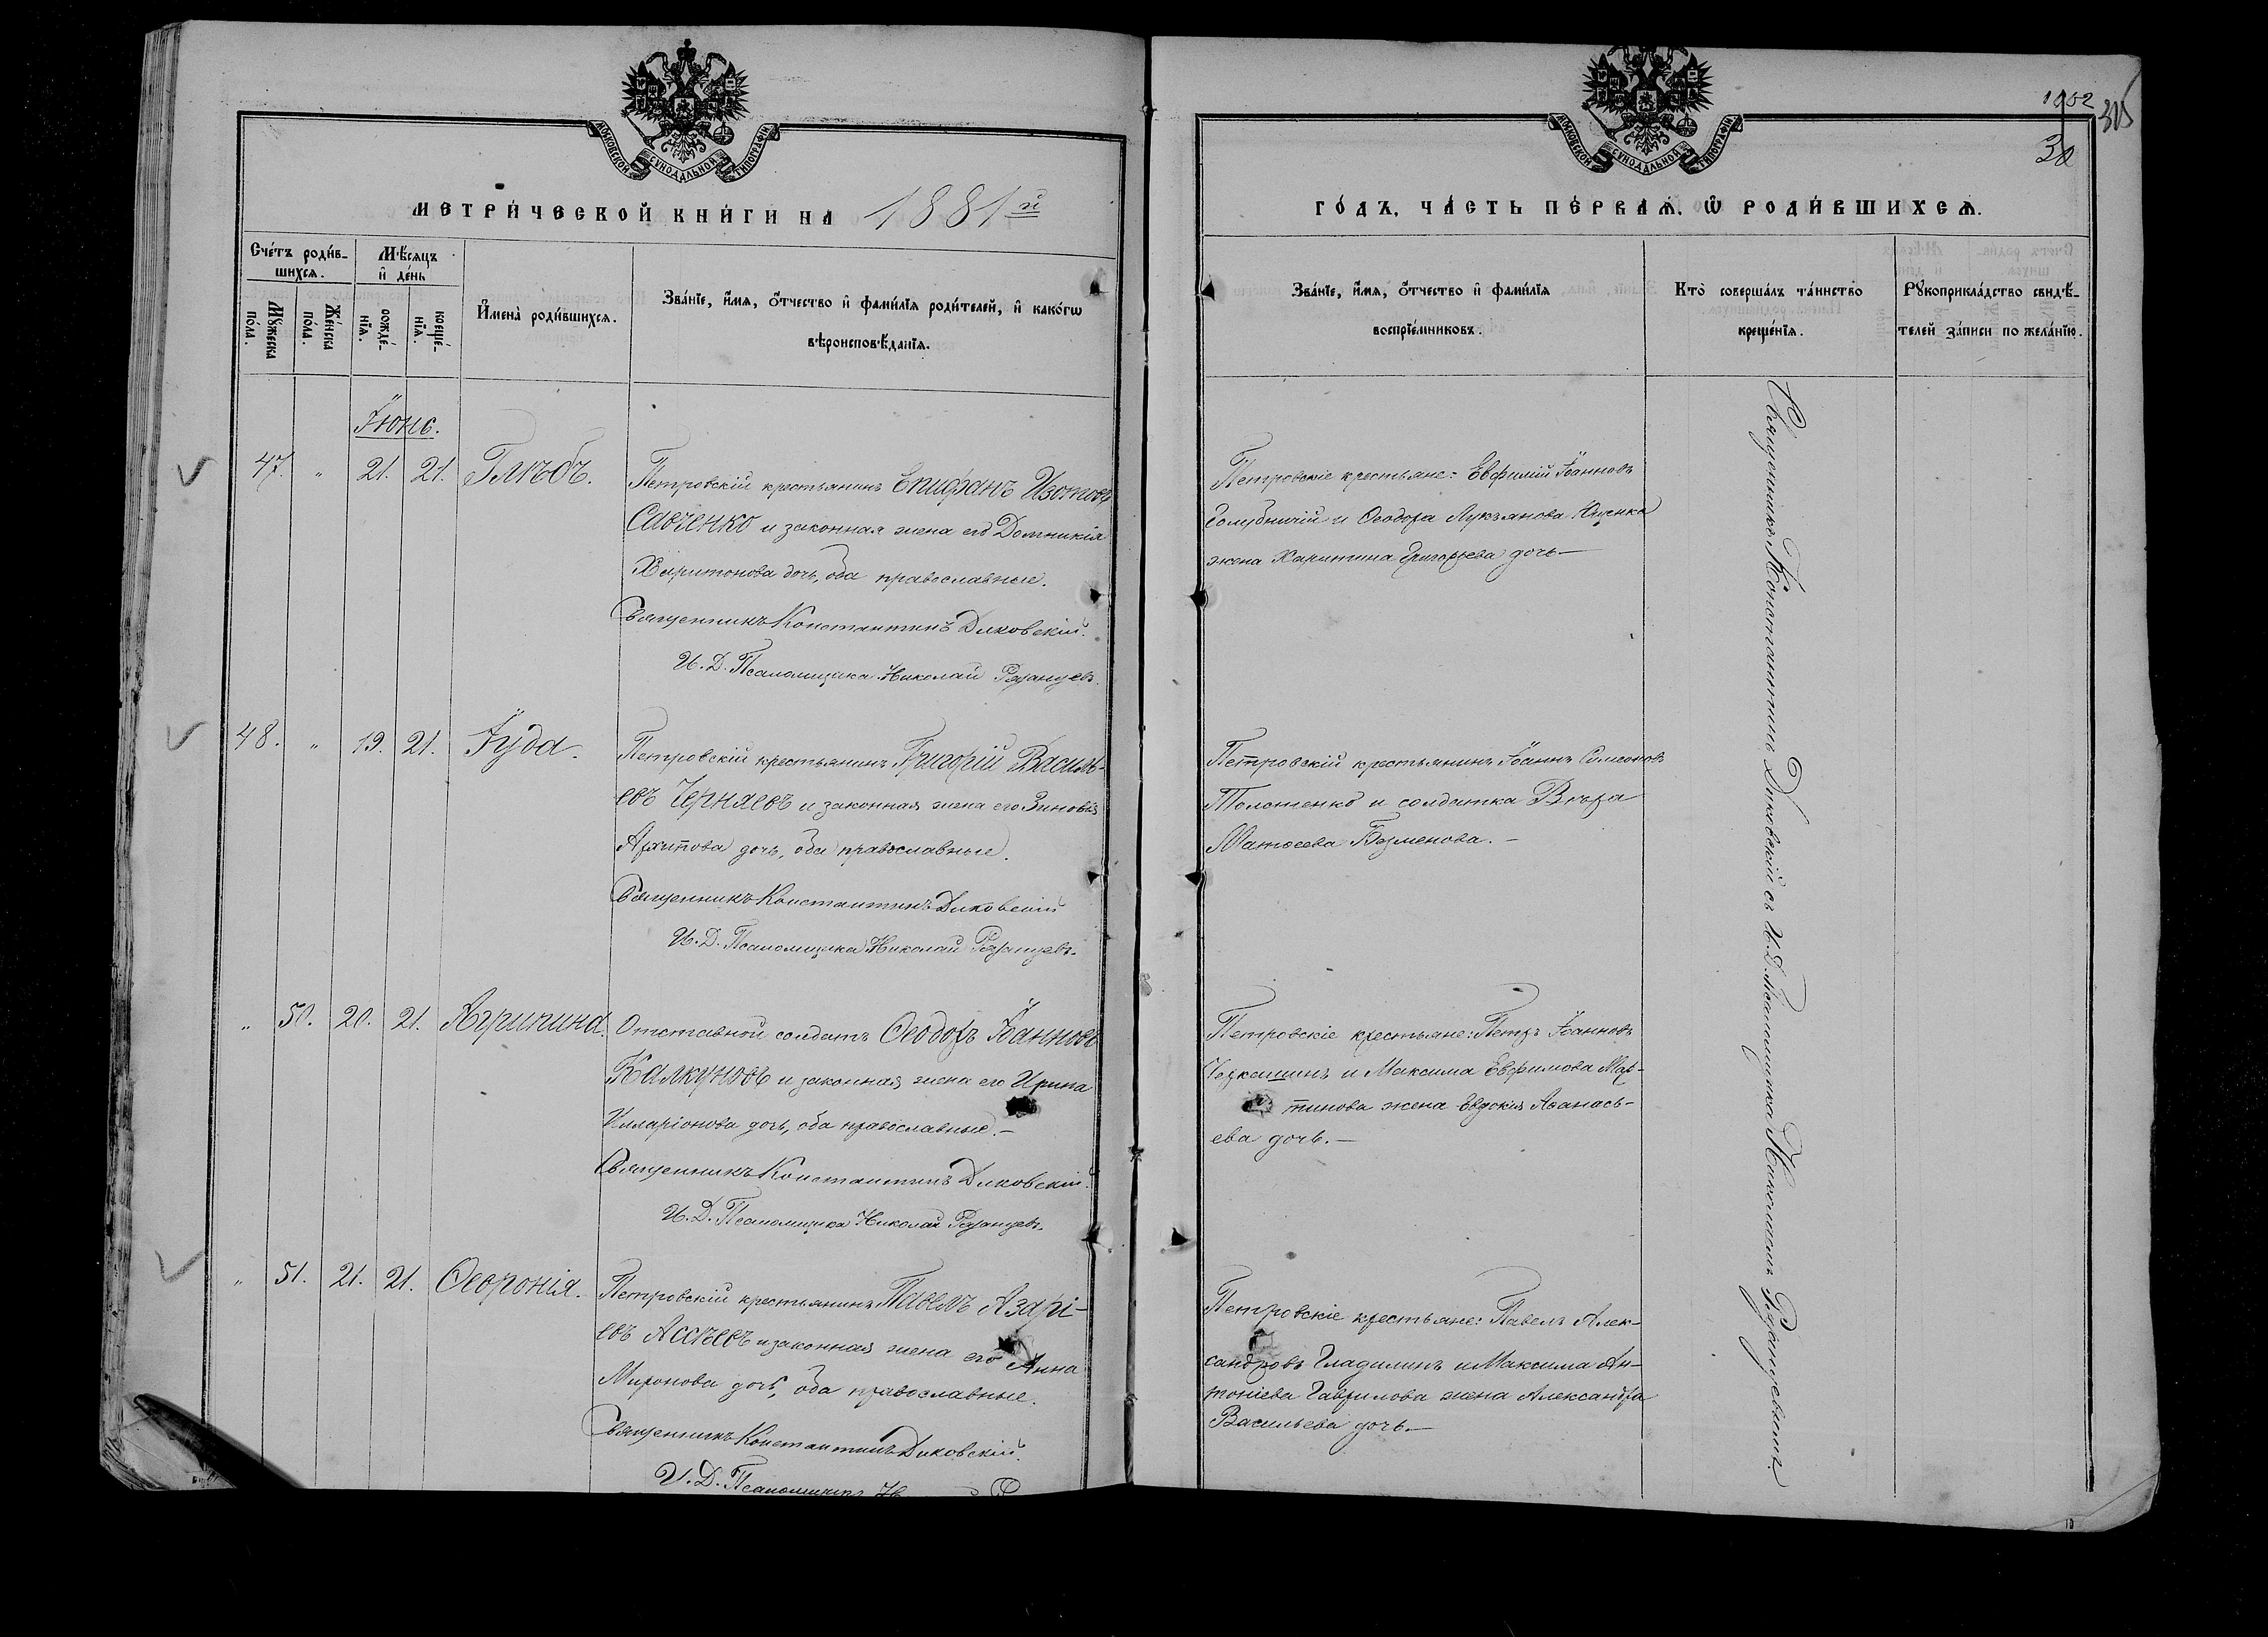 МОСКОВСКОЙ СѴНОДАЛЬНОЙ ТИПОГРАФІИ
МЕТРИ́ЧЕСКОЙ КНИ́ГИ НА 1881й
Сче́тъ роди́в-
шихсѧ.
Мꙋ́жеска
по́ла.
Же́нска
по́ла.
М҄ѣсѧцъ
и҆ де́нь
рожде́-
нїѧ.
креще́-
нїѧ.
И҆мена̀ роди́вшихсѧ.
Зва́нїе, и҆́мѧ, ѻ҆́тчество и҆ фами́лїѧ роди́телей, и҆ како́гѡ
вѣроисповѣ́данїѧ.
Іюнь.
47. " 21. 21. Глѣбъ.
Петровскій крестьянинъ Епифанъ Изотовъ
Савченко и законная жена его Домникія
Харитонова дочь, оба православные.
Священникъ Константинъ Диковскій.
И. Д. Псаломщика Николай Рязанцевъ.
48. " 19. 21. Іуда.
Петровскій крестьянинъ Григорій Василь-
евъ Черняевъ и законная жена его Зиновія
Архипова дочь, оба православные.
Священникъ Константинъ Диковскій
И. Д. Псаломщика Николай Рязанцевъ.
" 50. 20. 21. Агрипина.
Отставной солдатъ Ѳеодоръ Іоанновъ
Калкуновъ и законная жена его Ирина
Илларіонова дочь, оба православные.—
Священникъ Константинъ Диковскій.
И. Д. Псаломщика Николай Рязанцевъ.
" 51. 21. 21. Ѳевронія.
Петровскій крестьянинъ Павелъ Азарі-
евъ Ассѣевъ и законная жена его Анна
Миронова дочь, оба православные.
Священникъ Константинъ Диковскій.
И. Д. Псаломщика
1052
315
30
МОСКОВСКОЙ СѴНОДАЛЬНОЙ ТИПОГРАФІИ
ГО́ДЪ, ЧА́СТЬ ПЕ́РВАѦ, Ѿ РОДИ́ВШИХСѦ.
Зва́нїе, и҆́мѧ, ѻ҆́тчество и҆ фами́лїѧ
воспрїе́мниковъ.
Кто̀ соверша́лъ та́инство
креще́нїѧ.
Рꙋкоприкла́дство свидѣ́-
телей за́писи по жела́нїю.
Петровскіе крестьяне: Евфимій Іоанновъ
Голубничій и Ѳеодора Лукьянова Яценка
жена Харитина Григорьева дочь—
Петровскій крестьянинъ Іоаннъ Симеоновъ
Толстенко и солдатка Вѣра
Матѳеева Безменова.—
Петровскіе крестьяне: Петръ Іоанновъ
и Максима Евфимова Мар-
тинова жена Евдокія Аѳанась-
ева дочь.—
Петровскіе крестьяне: Павелъ Алек-
сандровъ Гладилинъ и Максима Ан-
тоніева Гаврилова жена Александра
Васильева дочь.—
Священникъ Константинъ Диковскій съ И. Д. Псаломщика Николаемъ Рязанцевымъ.